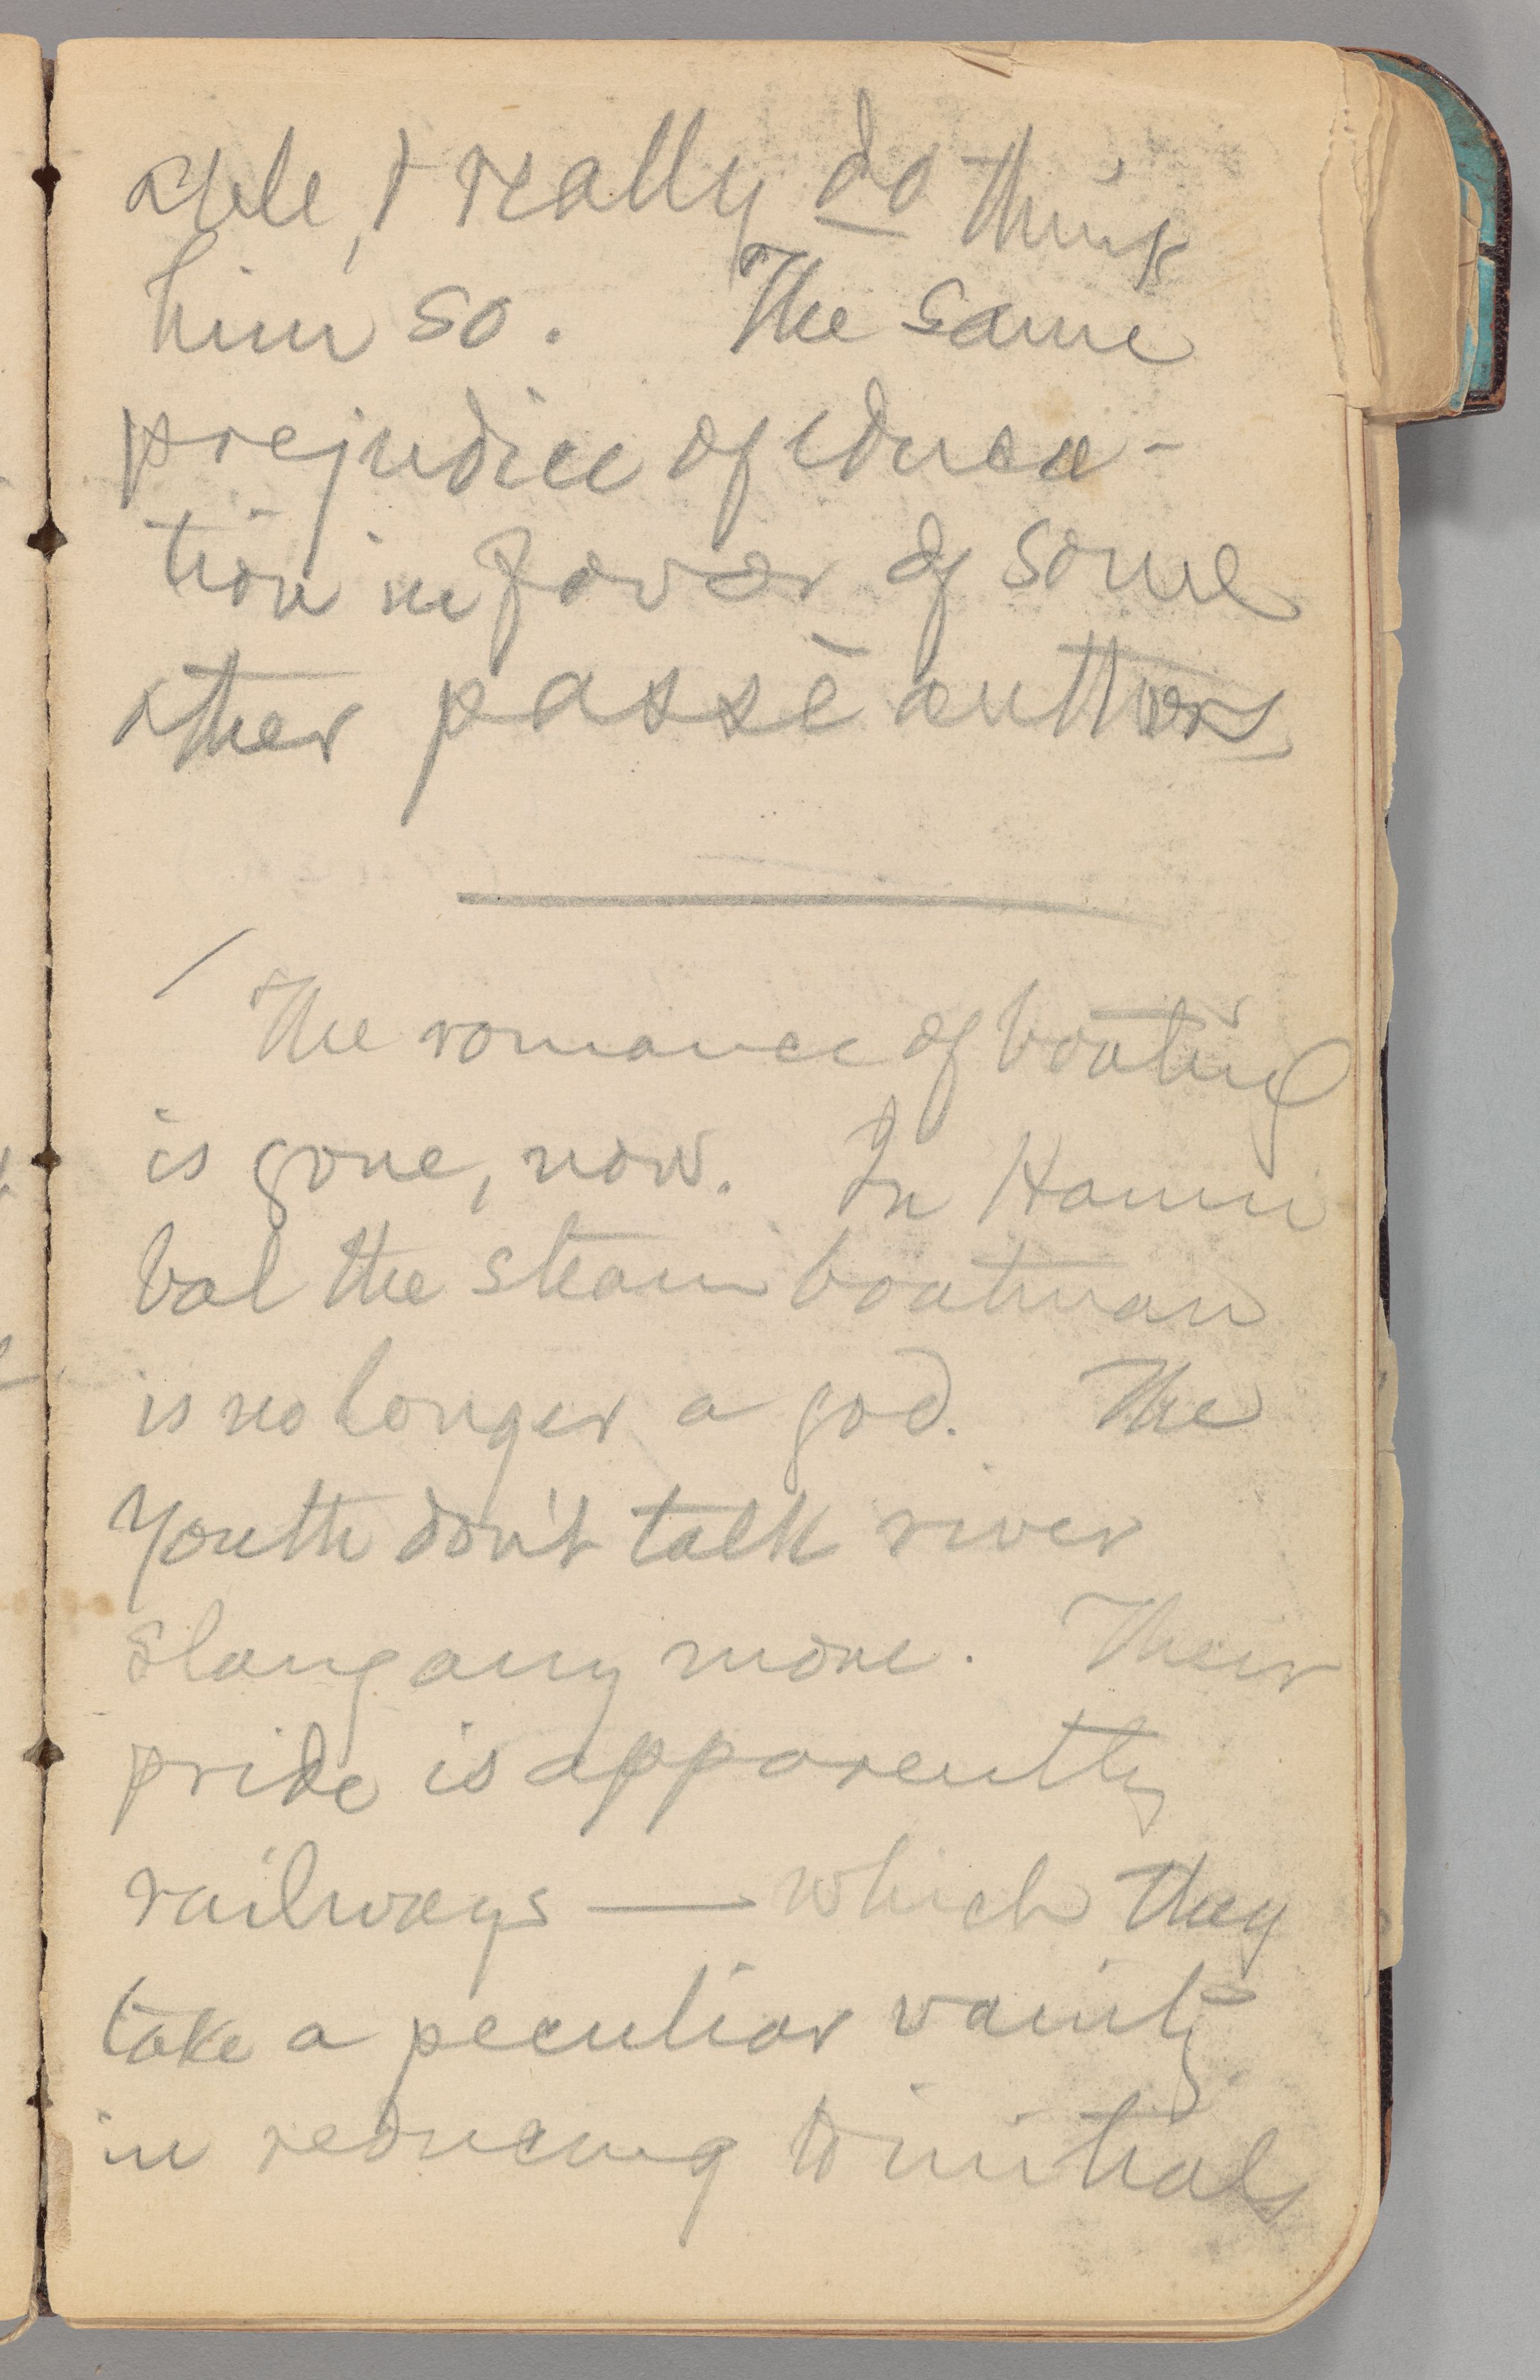 able, I really do think
him so. The same
prejudice of educa-
tion in favor of some
other passè authors
The romance of boating
is gone, now. In Hanni
bal the steamboatman
is no longer a god. The
youth don't talk river
slang any more. Their
pride is apparently
railways — which they
take a peculiar vanity
in reducing to initials